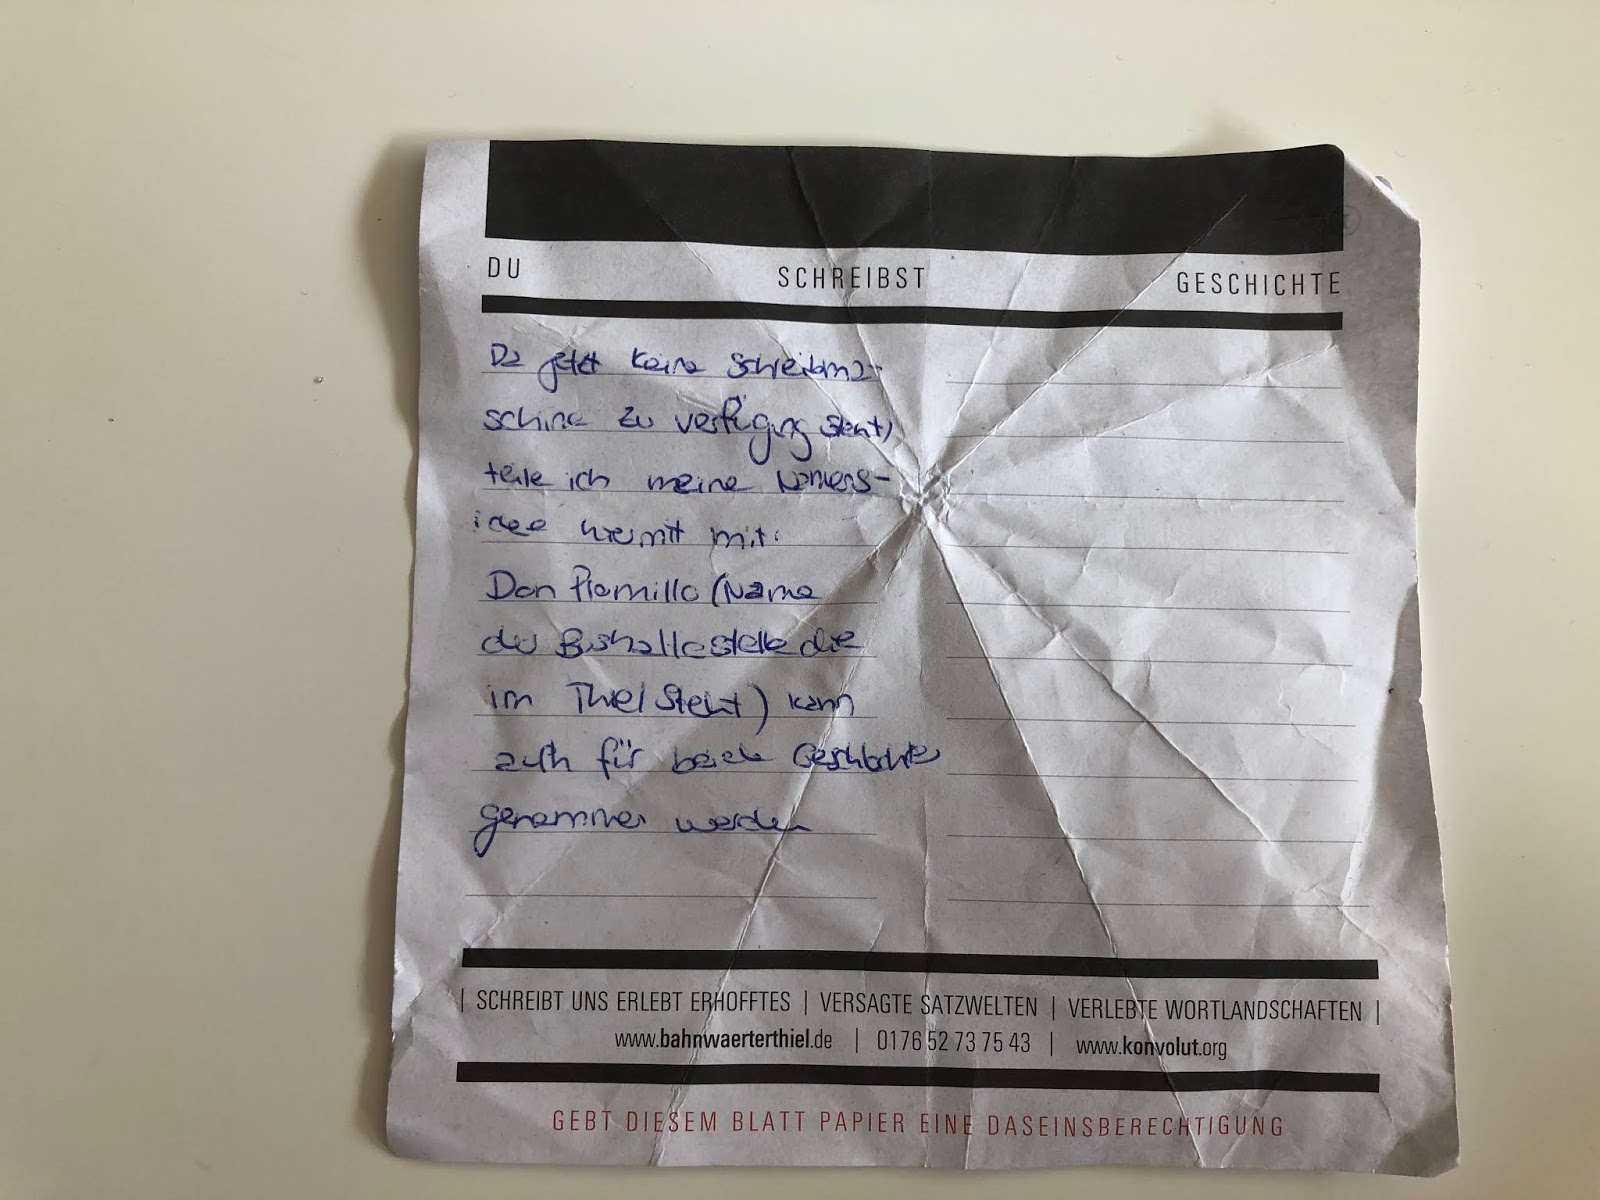 DU SCHREIBST GESCHICHTE
Da jetzt keine Schreibma-
schine zu verfügung steht,
teile ich meine Namens-
idee hiermit mit:
Don (Name
der Bushaltestelle die
im Thiel steht) kann
auch für beide Geschlechter
genommen werden
| SCHREIBT UNS ERLEBT ERHOFFTES | VERSAGTE SATZWELTEN | VERLEBTE WORTLANDSCHAFTEN |
www.bahnwaerterthiel.de | 0176 52 73 75 43 | www.konvolut.org
GEBT DIESEM BLATT PAPIER EINE DASEINSBERECHTIGUNG